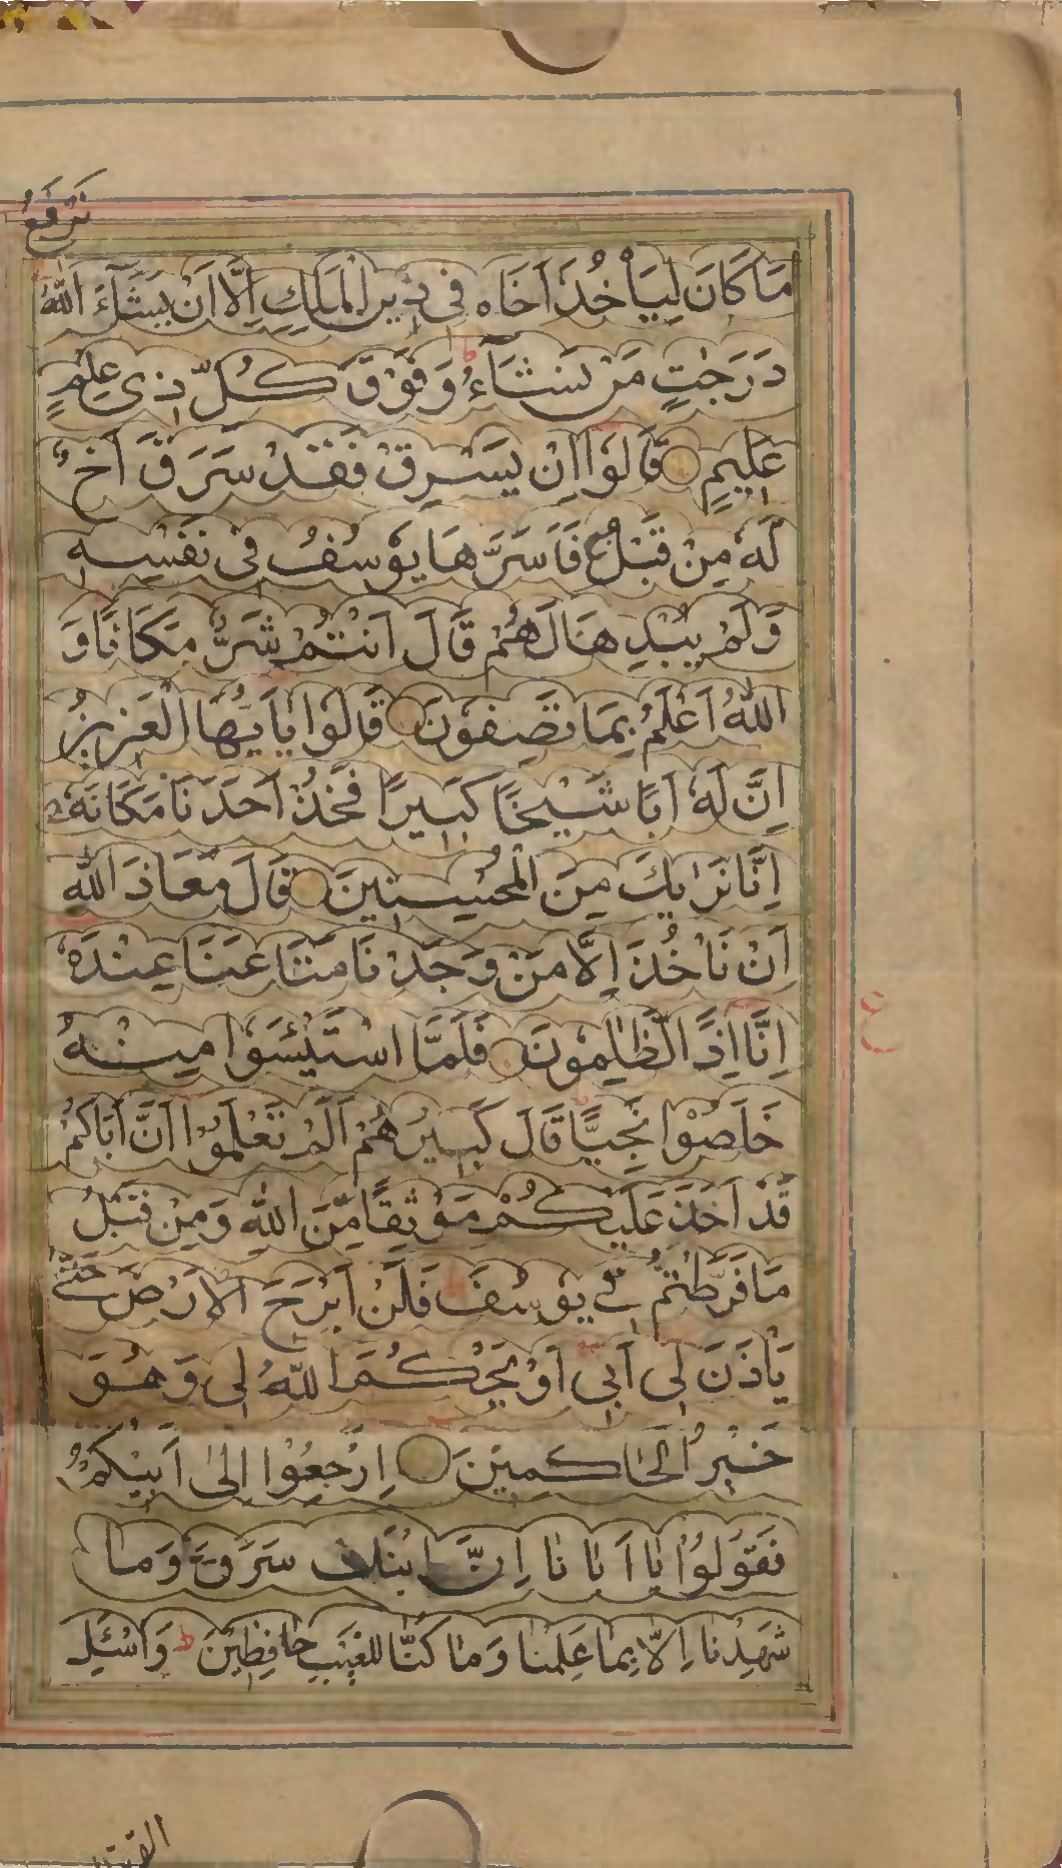 نَرْفَعُ
مَا كَانَ لِيَأْخُذَ اَخَاهُ فِى دِيْنِ الْمَلِكِ اِلَّا اَنْ يَشَآءَ اللّٰهُ
دَرَجٰتٍ مَنْ نَشَآءُ ط وَفَوْقَ كُلِّ ذِى عِلْمٍ
عَلِيمٍ قَالُوْا اِنْ يَسْرِقْ فَقَدْ سَرَقَ اَخٌ
لَهٗ مِنْ قَبْلُ ج فَاَسَرَّهَا يُوْسُفُ فِى نَفْسِهٖ
وَلَمْ يُبْدِهَا لَهُمْ قَالَ اَنْتُمْ شَرٌّ مَكَانًا وَ
اللّٰهُ اَعْلَمُ بِمَا تَصِفُوْنَ قَالُوْا يٰاَيُّهَا الْعَزِيْزُ
اِنَّ لَهٗ اَبًا شَيْخًا كَبِيرًا فَخُذْ اَحَدَنَا مَكَانَهٗ
اِنَّا نَرٰيكَ مِنَ الْمُحْسِنِينَ قَالَ مَعَاذَ اللّٰهِ
اَنْ نَاْخُذَ اِلَّا مَنْ وَجَدْنَا مَتَاعَنَا عِنْدَهٗ
اِنَّا اِذًا لَّظٰلِمُوْنَ فَلَمَّا اسْتَيْئَسُوْا مِنْهُ
خَلَصُوْا نَجِيًّا قَالَ كَبِيرُهُمْ اَلَمْ تَعْلَمُوْا اَنَّ اَبَاكُمْ
قَدْ اَخَذَ عَلَيْكُمْ مَوْثِقًا مِّنَ اللّٰهِ وَمِنْ قَبْلُ
مَا فَرَّطْتُمْ فِى يُوْسُفَ فَلَنْ اَبْرَحَ الْاَرْضَ حَتّٰى
يَاْذَنَ لِى اَبِى اَوْ يَحْكُمَ اللّٰهُ لِى وَهُوَ
خَيْرُ الْحَاكِمِيْنَ اِرْجِعُوْا اِلٰى اَبِيْكُمْ
فَقُوْلُوْا يٰا اَبَانٰا اِنَّ ابْنَكَ سَرَقَ وَمٰا
شَهِدْنٰا اِلّٰا بِمٰا عَلِمْنٰا وَمٰا كُنّٰا لِلْغَيْبِ حٰافِظِيْنَ وَاسْئَلِ